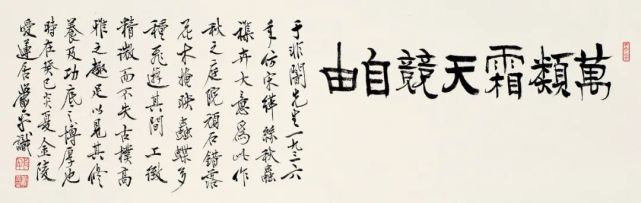 萬類霜天競自由
于非闇先生一九三六
年仿宋緙絲秋蟲
蔬卉大意爲此作
秋之庭院頑石錯落
花木掩映蟲蝶多
種飛遊其間工緻
精微而不失古樸高
雅之趣足以見其修
養及功底之博厚也
時在癸巳炎夏金陵
愛蓮居 識